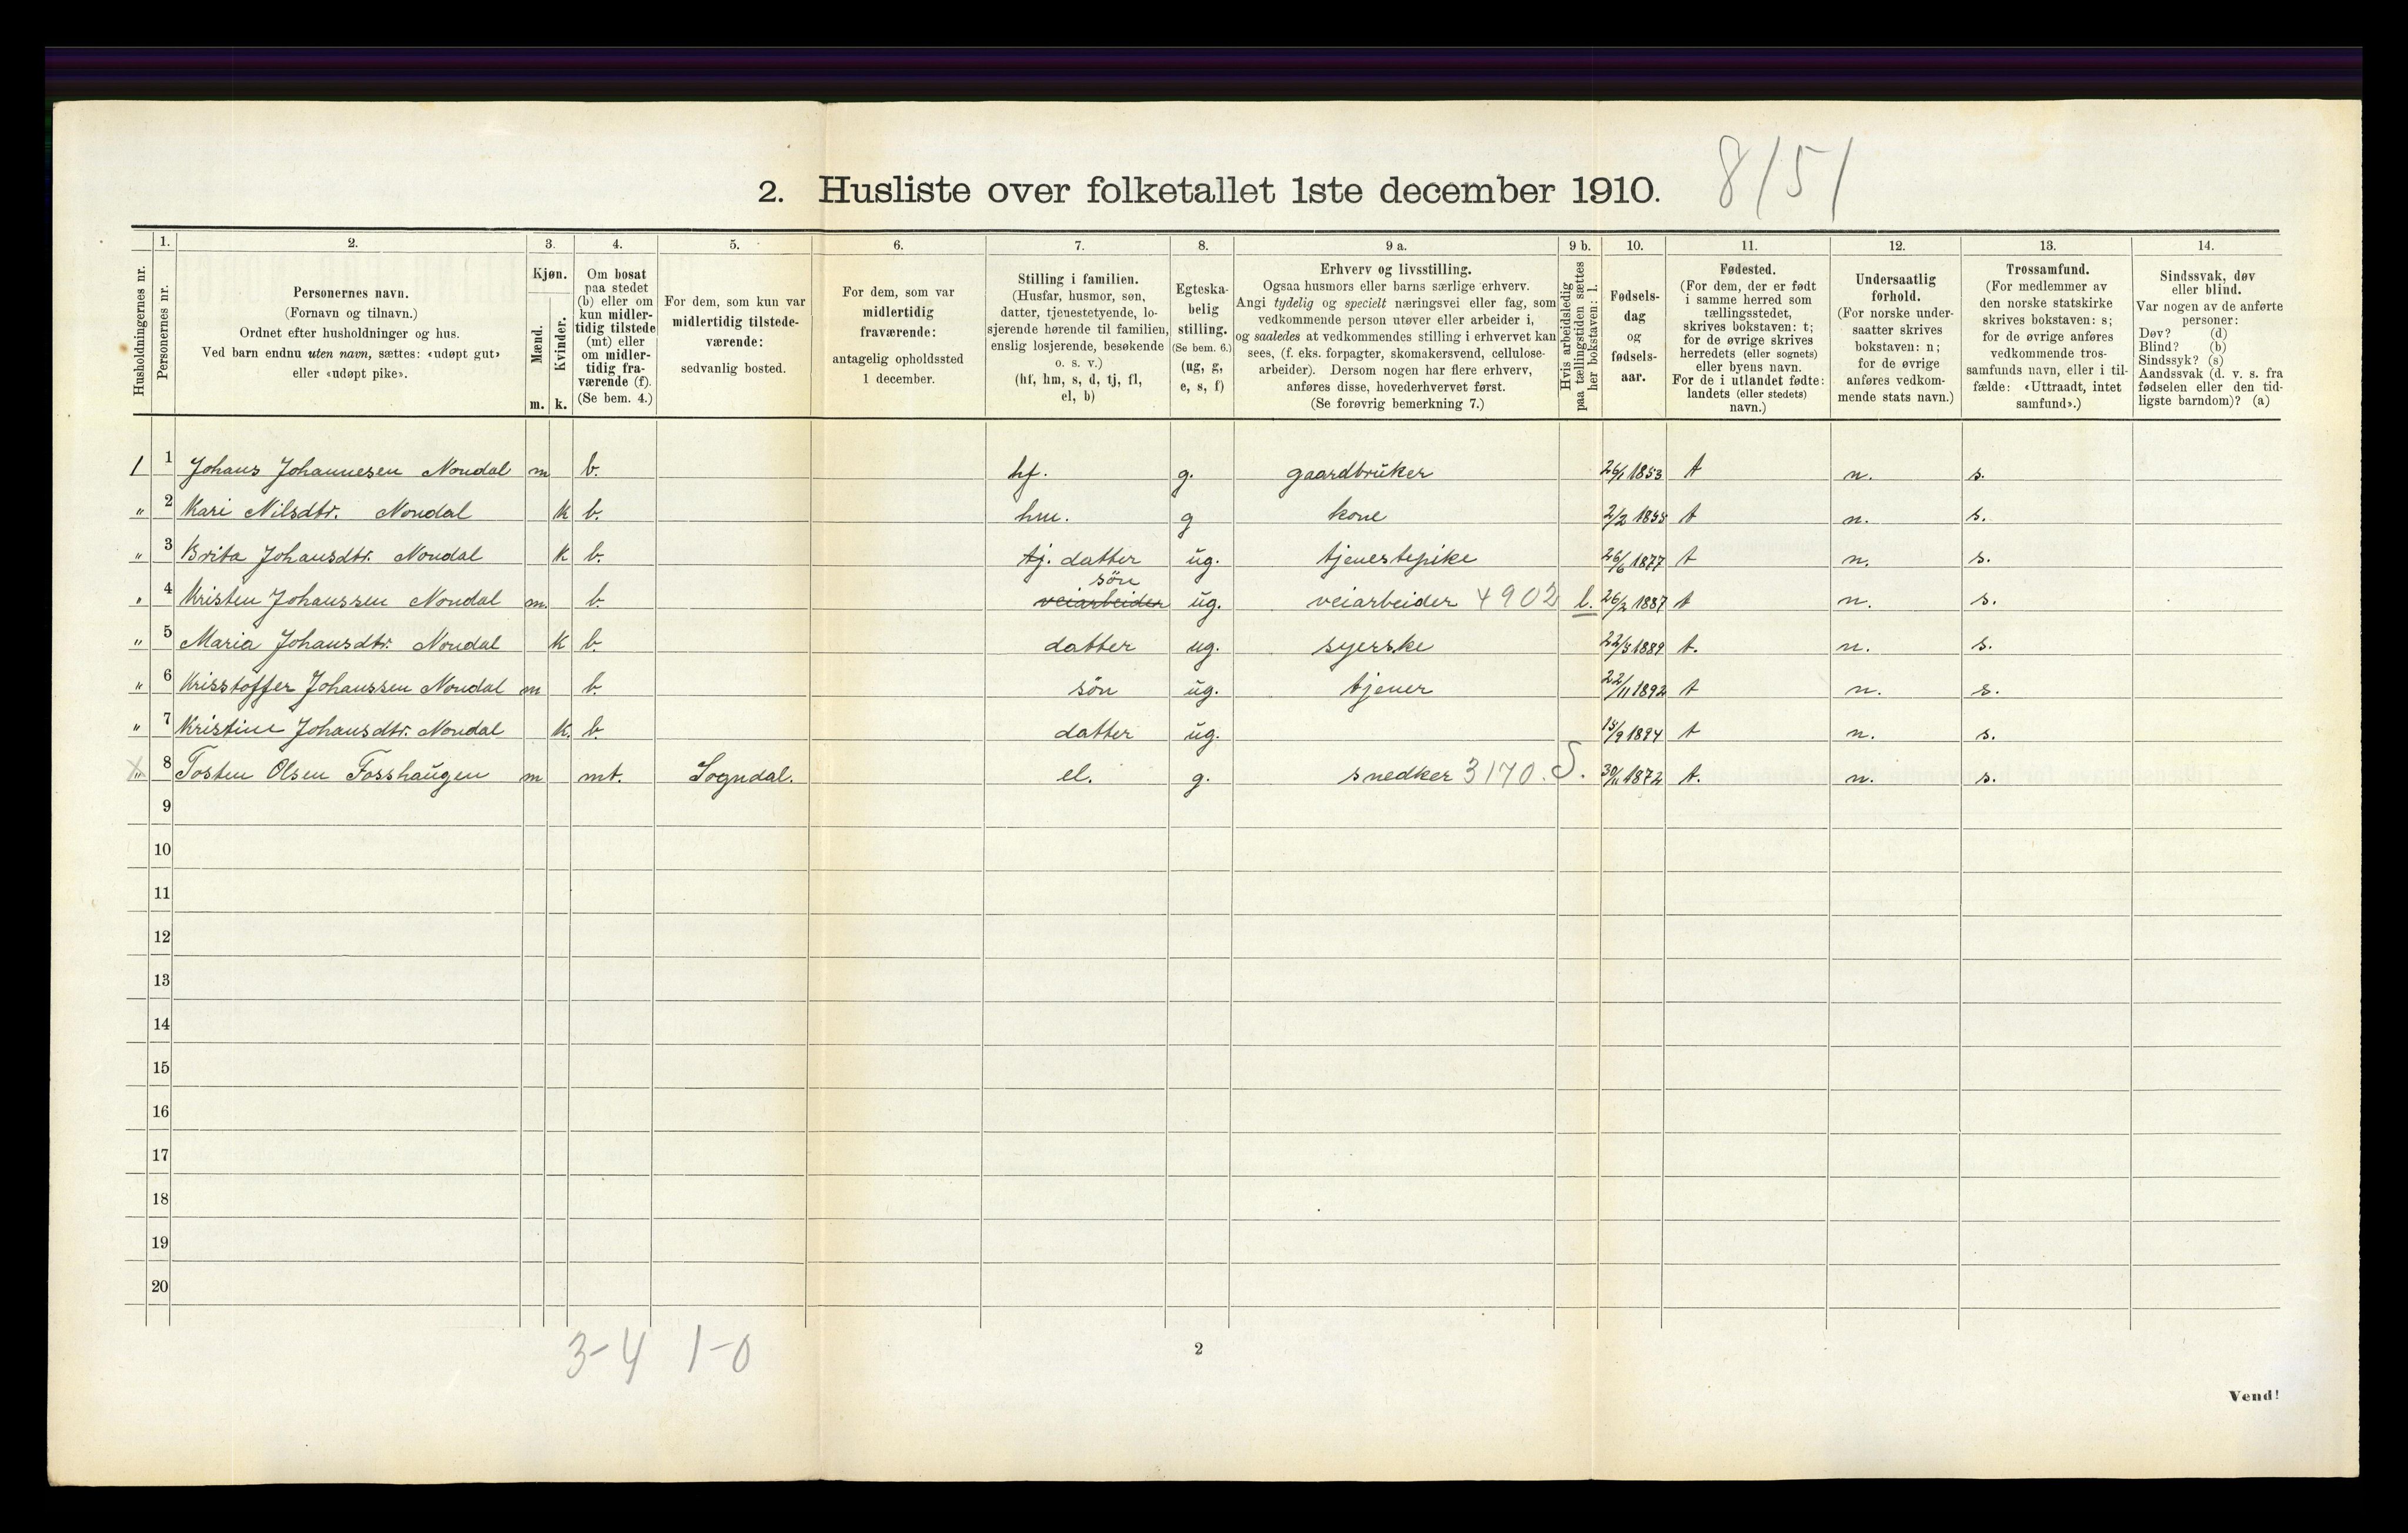 8/51
2. Husliste over folketallet 1ste december 1910.
1. 2. 3. 4. 5. 6. 7. 8. 9 a. 9 b. 10. 11. 12. 13. 14.
Husholdningernes nr.
Personernes nr.
Personernes navn.
(Fornavn og tilnavn.)
Ordnet efter husholdninger og hus.
Ved barn endnu uten navn, sættes: «udøpt gut»
eller «udøpt pike».
Kjøn.
Mænd.
Kvinder.
m. k.
Om bosat
paa stedet
(b) eller om
kun midler-
tidig tilstede
(mt) eller
om midler-
tidig fra-
værende (f).
(Se bem. 4.)
For dem, som kun var
midlertidig tilstede-
værende:
sedvanlig bosted.
For dem, som var
midlertidig
fraværende:
antagelig opholdssted
1 december.
Stilling i familien.
(Husfar, husmor, søn,
datter, tjenestetyende, lo-
sjerende hørende til familien,
enslig losjerende, besøkende
o. s. v.)
(hf, hm, s, d, tj, fl,
el, b)
Egteska-
belig
stilling.
(Se bem. 6.)
(ug, g,
e, s, f)
Erhverv og livsstilling.
Ogsaa husmors eller barns særlige erhverv.
Angi tydelig og specielt næringsvei eller fag, som
vedkommende person utøver eller arbeider i,
og saaledes at vedkommendes stilling i erhvervet kan
sees, (f. eks. forpagter, skomakersvend, cellulose-
arbeider). Dersom nogen har flere erhverv,
anføres disse, hovederhvervet først.
(Se forøvrig bemerkning 7.)
Hvis arbeidsledig
paa tællingstiden sættes
her bokstaven: l.
Fødsels-
dag
og
fødsels-
aar.
Fødested.
(For dem, der er født
i samme herred som
tællingsstedet,
skrives bokstaven: t;
for de øvrige skrives
herredets (eller sognets)
eller byens navn.
For de i utlandet fødte:
landets (eller stedets)
navn.)
Undersaatlig
forhold.
(For norske under-
saatter skrives
bokstaven: n;
for de øvrige
anføres vedkom-
mende stats navn.)
Trossamfund.
(For medlemmer av
den norske statskirke
skrives bokstaven: s;
for de øvrige anføres
vedkommende tros-
samfunds navn, eller i til-
fælde: «Uttraadt, intet
samfund».)
Sindssvak, døv
eller blind.
Var nogen av de anførte
personer:
Døv? (d)
Blind? (b)
Sindssyk? (s)
Aandssvak (d. v. s. fra
fødselen eller den tid-
ligste barndom)? (a)
1 1 Johans Johannesen Nondal m b. hf. g. gaardbruker 26/1 1853 t n. s.
" 2 Kari Nilsdtr. Nondal k b. hm. g kone 2/2 1855 t n. s.
" 3 Brita Johansdtr. Nondal k b. tj. datter ug. tjenestepike 26/6 1877 t n. s.
søn
" 4 Kristen Johanssen Nondal m. b. veiarbeider ug. veiarbeider 4902 l. 26/2 1887 t n. s.
" 5 Maria Johansdtr. Nondal k b. datter ug. syerske 22/5 1889 t. n. s.
" 6 Krisstoffer Johanssen Nondal m b. søn ug. tjener 22/11 1892 t n. s.
" 7 Kristine Johansdtr. Nondal k. b. datter ug. 15/9 1894 t n. s.
x " 8 Tosten Olsen Fosshaugen m mt. Sogndal. el. g. snedker 3170. S. 30/11 1872 t. n. s.
9
10
11
12
13
14
15
16
17
18
19
20
3-4 1-0
2
Vend!